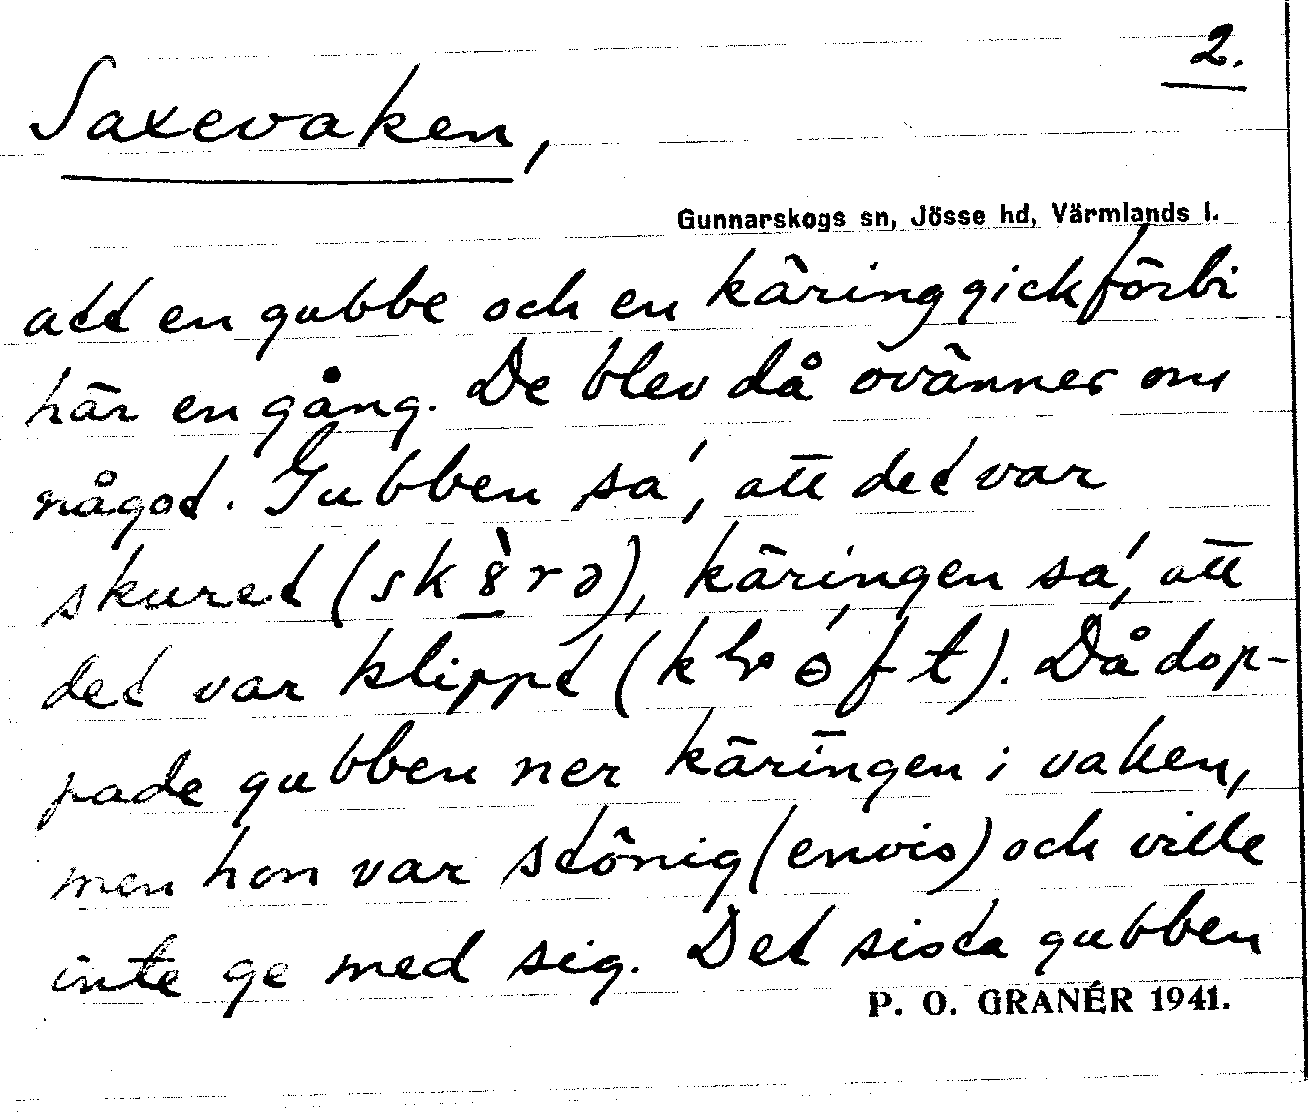 2.
Saxevaken,
Gunnarskogs sn, Jösse hd, Värmlands l.
att en gubbe och en käring gick förbi
här en gång. De blev då ovänner om
något. Gubben sa', att det var
skuret (sk rə), käringen sa', att
det var klippt ( ). Då dop-
pade gubben ner käringen i vaken,
men hon var stönig (envis) och ville
inte ge med sig. Det sista gubben
P. O. GRANÉR 1941.